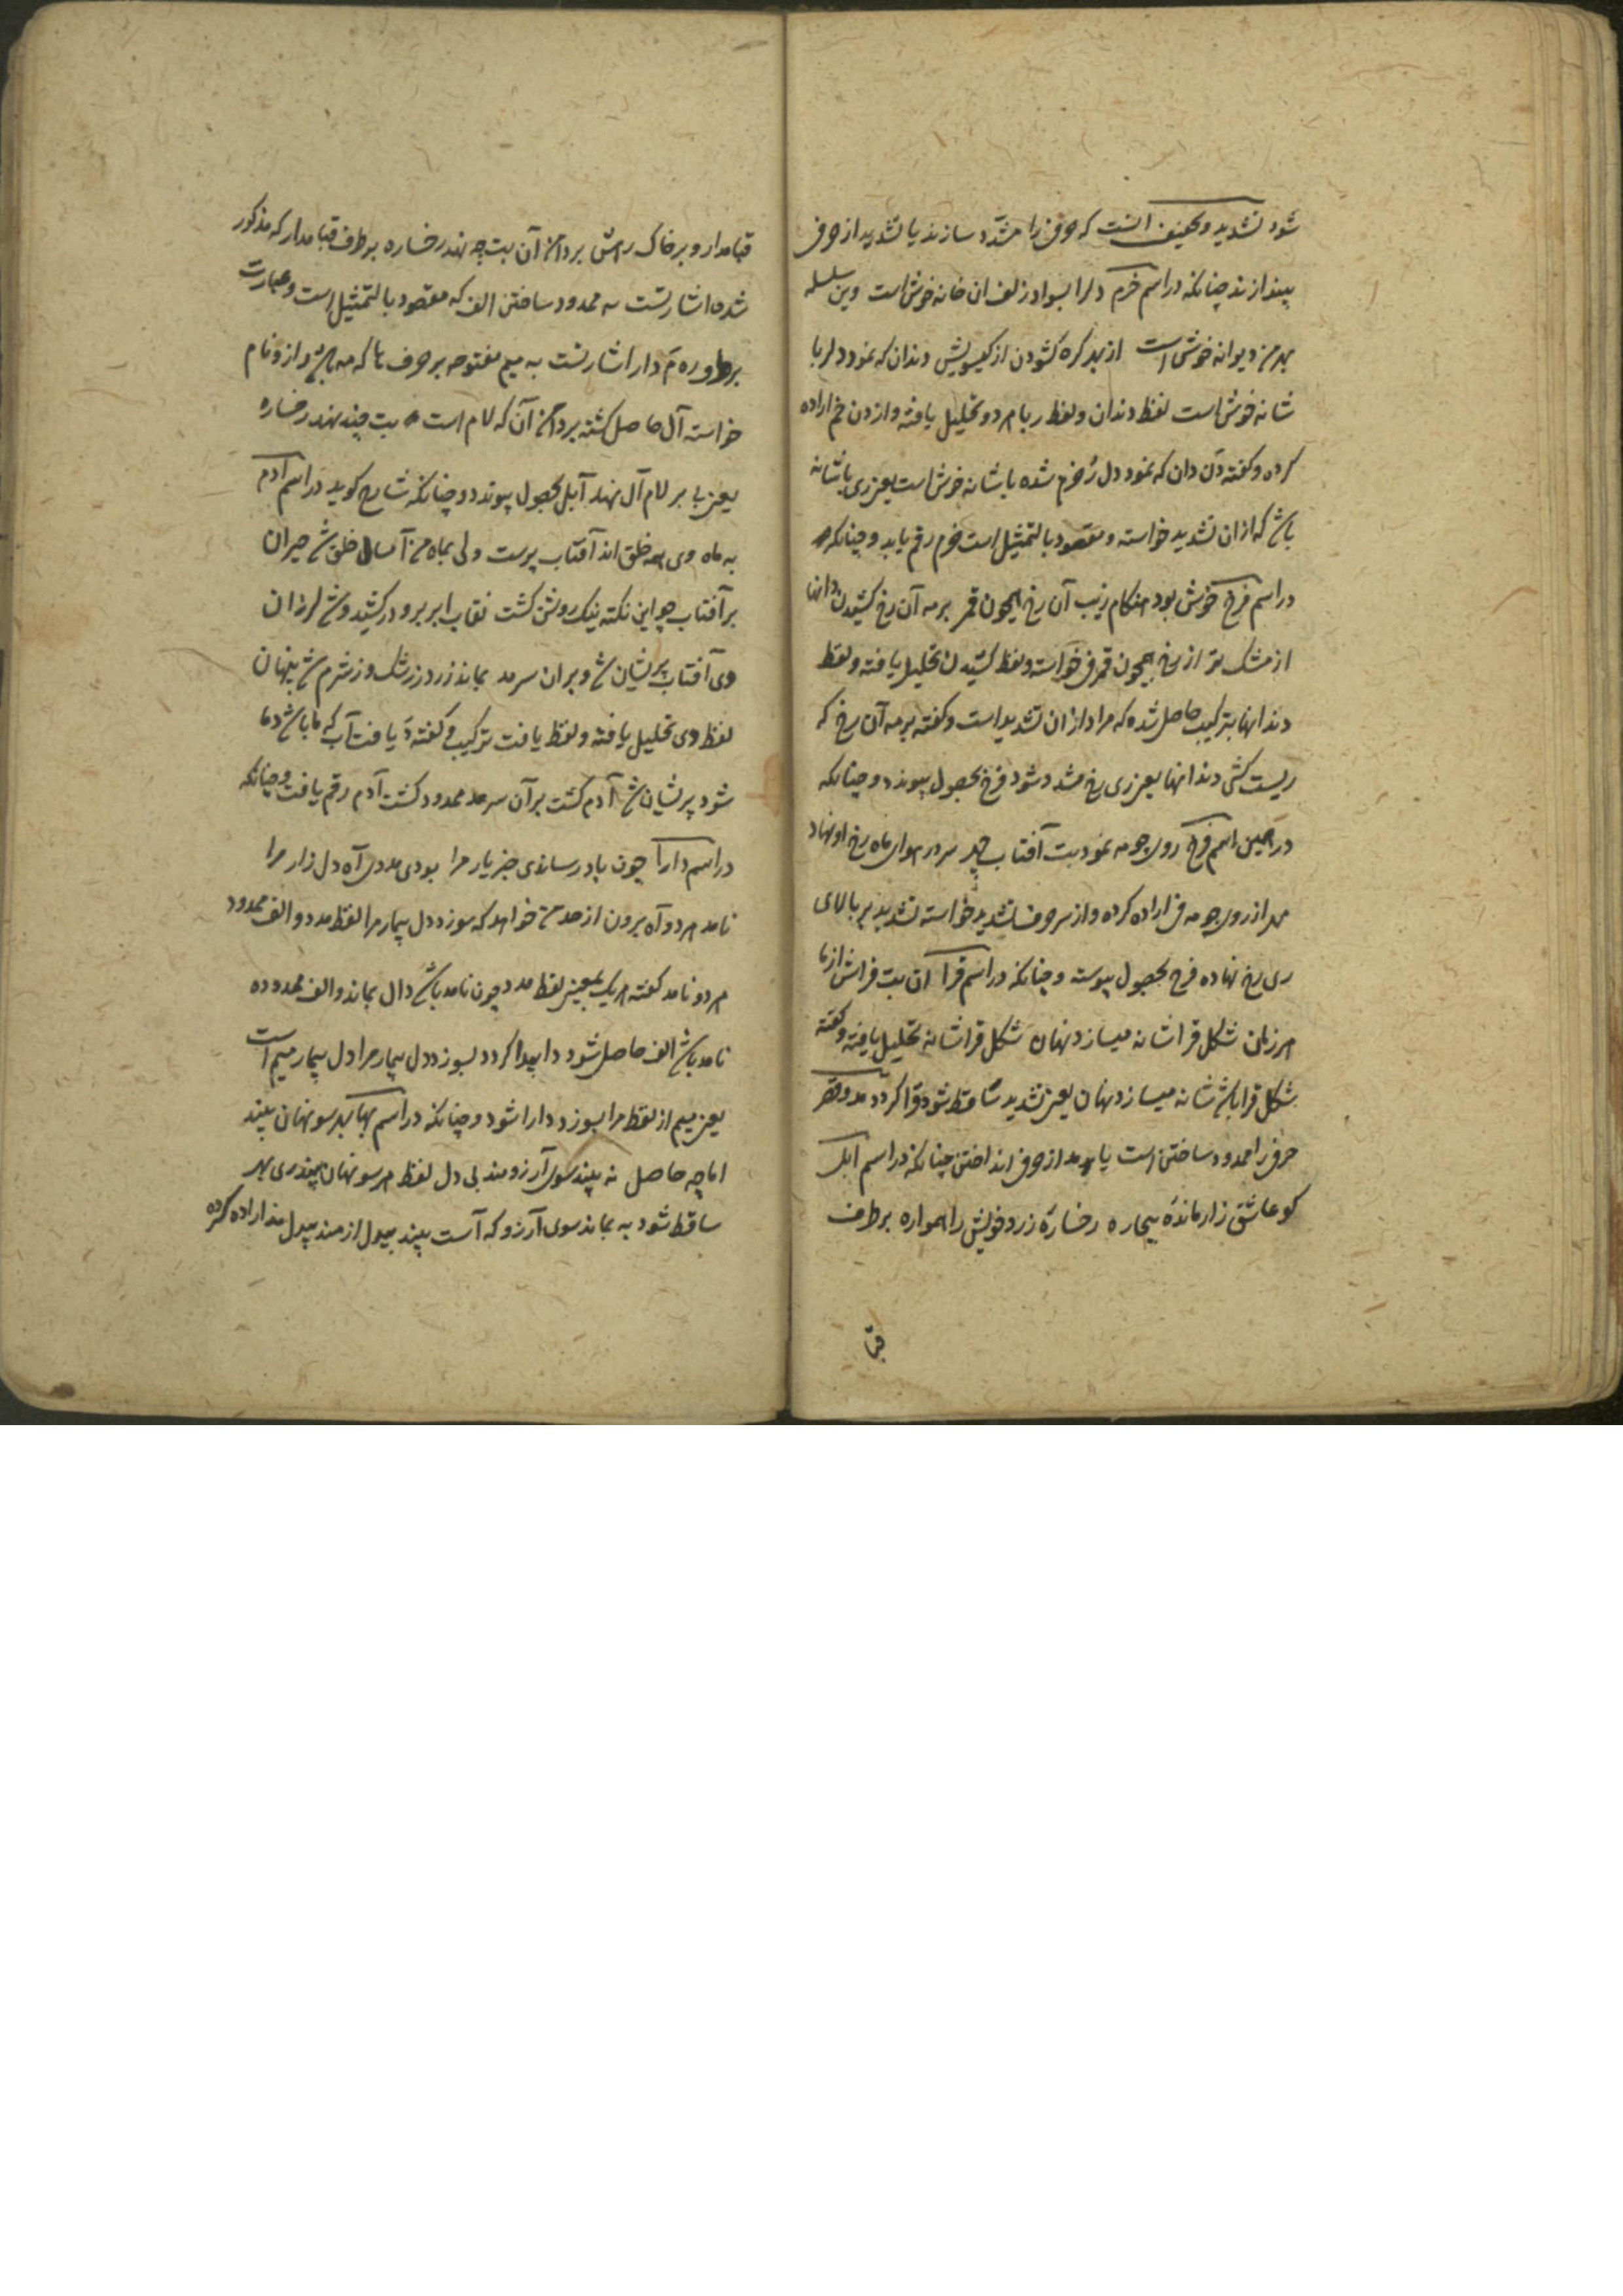 شود تشدید و تخفیف آنست که حرفی را مشدّد سازند یا تشدید از حرف
بیندازند چنانکه در اسم خرم دلرا بسواد زلف ان خانه خوش است وین سلسله
بهر من دیوانه خوش است از بهر کره کشودن از کیسویش دندان که نمود دلربا
شانه خوش است لفظ دندان و لفظ ربا هر دو تحلیل یافته و از دن خم اراده
کرده و کفته دن دان که نمود دل رُ خرم شده با شانه خوش است یعنی ری باشانه
باش که ازان تشدید خواسته و مقصود بالتمثیل است خرم رقم یابد و چنانکه
در اسم فرخ خوش بود هنکام زیب آن رخ همچون قمر بر مه آن رخ کشیدن دانها
از مشک تر از رخ همچون قمر فی خواسته و لفظ کشیدن تحلیل یافته و لفظ
دندانها بترکیب حاصل شده که مراد ازان تشدید است و کفته بر مه آن رخ که
ریست کشی دندانها یعنی ری رخ مشدد شود فرخ بحصول پیوندد و چنانکه
در همین اسم فرخ روی چو مه نمود بت آفتاب چهر سر در هوای ماه رخ او نهاد
مهر از روی چو مه فی اراده کرده و از سر حرف تشدید خواسته تشدید بر بالای
ری رخ نهاده فرخ بحصول پیوسته و چنانکه در اسم قرا آن بت فراش از ما
هر زمان شکل قرا شانه میسازد نهان شکل قرا شانه تحلیل یافته و کفته
شکل قرا باش شانه میسازد نهان یعنی تشدید ساقط شود قرا کردد مد و قصر
حرفی را ممدود ساختن است یا مد از حرف انداختن چنانکه در اسم آبل
کو عاشق زار ماندهٔ بیچاره رخسارهٔ زرد خویش را همواره بر طرف
قبا
قبا مدار و بر خاک رهش بر دامن آن بت چه نهد رخساره بر طرف قبا مدار که مذکور
شده اشارتست به ممدود ساختن الف که مقصود بالتمثیل است و عبارت
بر طور ره مَ دار اشارتست به میم مفتوحه بر حرف ها که مه باشد و از و نام
خواسته آل حاصل کشته بر دامن آن که لام است بت چند نهد رخساره
یعنی با بر لام آل نهد آبل بحصول پیوندد و چنانکه شارح کوید در اسم آدم
به ماه وی همه خلق اند آفتاب پرست ولی بماه من آسمان خلق شد حیران
بر آفتاب چو این نکته نیک روشن کشت نقاب ابر برو در کشید و شد لرزان
وی آفتاب پریشان شد و بران سر مد بماند زرد ز رشک و ز شرم شد پنهان
لفظ وی تحلیل یافته و لفظ یافت ترکیب و کفته دَ یافت آب که ما باشد دما
شود پریشان شد آدم کشت بر آن سر مد ممدود کشت آدم رقم یافت و چنانکه
در اسم دارا چون باد رساندی خبر یار مرا بودی مدد آه دل زار مرا
نامد هر دو آه برون از مد من خواهد که سوزد دل بیمار مرا لفظ مدد و الف ممدود
هر دو نامد کفته هر یک بمعنی لفظ مدد چون نامد باشد دال بماند و الف ممدوده
نامد باشد الف حاصل شود دا پیدا کردد بسوزد دل بیمار مرا دل بیمار میم است
یعنی میم از لفظ مرا بسوزد دارا شود و چنانکه در اسم بها بهر سو نهان بیند
اما چه حاصل نه بیند سوی آرزومند بی دل لفظ هر سو نهان بیند ری بهر
ساقط شود به بماند سوی آرزو که آ است بیند بیدل از مند بیدل مد اراده کرده